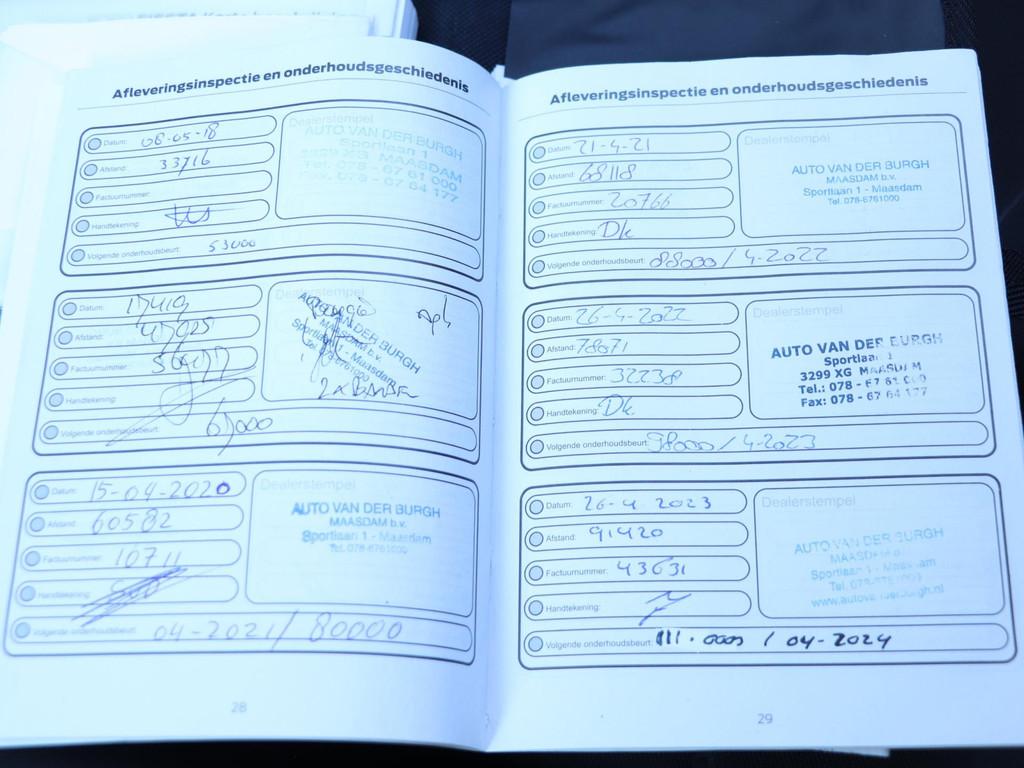 Afleveringsinspectie en onderhoudsgeschiedenis
Datum: 08-05-18
Afstand: 33716
Factuurnummer:
Handtekening:
Volgende onderhoudsbeurt: 53000
Dealerstempel
AUTO VAN DER BURGH
Sportlaan 1
3299 XG MAASDAM
Tel. 078 - 67 61 000
Fax. 078 - 67 64 177
Datum:
Afstand:
Factuurnummer:
Handtekening:
Volgende onderhoudsbeurt:
Dealerstempel
AUTO VAN DER BURGH
MAASDAM b.v.
Sportlaan 1 - Maasdam
Tel. 078-6761000
Datum: 15-04-2020
Afstand: 60582
Factuurnummer: 10711
Handtekening:
Volgende onderhoudsbeurt: 04-2021 / 80000
Dealerstempel
AUTO VAN DER BURGH
MAASDAM b.v.
Sportlaan 1 - Maasdam
Tel. 078-6761000
28
Afleveringsinspectie en onderhoudsgeschiedenis
Datum: 21-4-21
Afstand: 68118
Factuurnummer: 20766
Handtekening: Dk
Volgende onderhoudsbeurt: 88000 / 4-2022
Dealerstempel
AUTO VAN DER BURGH
MAASDAM b.v.
Sportlaan 1 - Maasdam
Tel. 078-6761000
Datum: 26-4-2022
Afstand: 78071
Factuurnummer: 32238
Handtekening: Dk
Volgende onderhoudsbeurt: 98000 / 4-2023
Dealerstempel
AUTO VAN DER BURGH
Sportlaan 1
3299 XG MAASDAM
Tel.: 078 - 67 61 000
Fax: 078 - 67 64 177
Datum: 26-4 2023
Afstand: 91420
Factuurnummer: 43631
Handtekening:
Volgende onderhoudsbeurt: 111.000 / 04-2024
Dealerstempel
AUTO VAN DER BURGH
MAASDAM b.v.
Sportlaan 1 - Maasdam
Tel.
www.autovanderburgh.nl
29